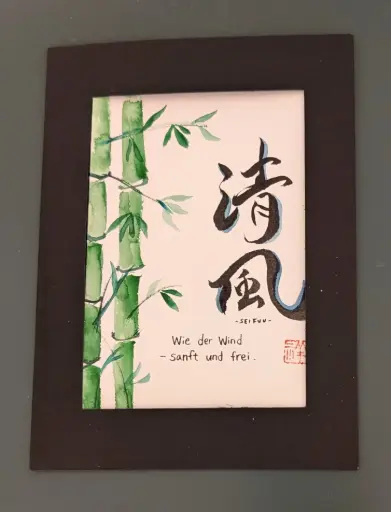 清風
-SEIFUU-
Wie der Wind
- sanft und frei.